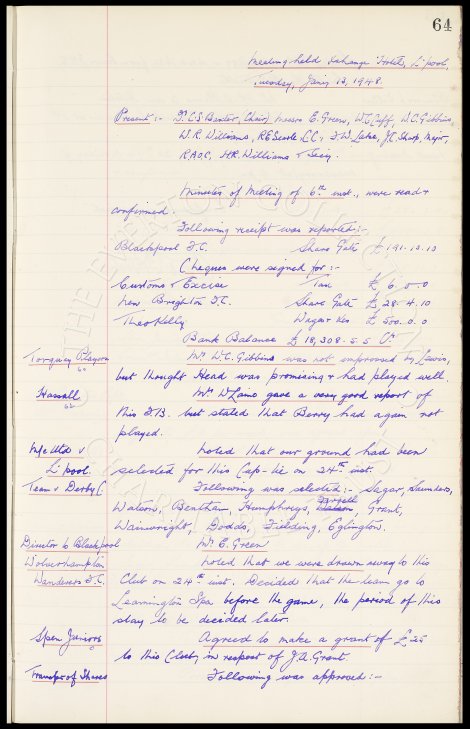 64
Meeting held Exchange Hotel, L'pool,
Tuesday, Jan'y 13, 1948.
Present:- C.S. Baxter, (Chair) Messrs E. Green, W.C. Cuff, W.C. Gibbins,
W.R. Williams, R.E. Searle C.C., J.C. Sharp, Major,
H.R. Williams & Secy.
Minutes of Meeting of 6th inst., were read &
confirmed
Following receipt was reported:-
Blackpool F.C. Share Gate £191.10.10
Cheques were signed for:-
Customs & Excise Tax £6.0.0
New Brighton F.C. Share Gate £28.4.10
Theo Kelly Wages & £500.0.0
Bank Balance £18,308.5.5 Cr
Torquay Players Mr. W.C. Gibbins was not impressed by Lewis,
but thought Head was promising & had played well.
Hassall Mr. gave a very good report of
this F.B. but stated that Berry had again not
played.
M/c Utd v noted that our ground had been
L'pool. selected for this Cup-tie on 24th inst.
Team v Derby C. Following was selected:- Sagar, Saunders,
Watson, Bentham, Humphreys, Farrell, Grant,
Wainwright, Dodds, Fielding, Eglington.
Director to Blackpool Mr. E. Green
Wolverhampton noted that we were drawn away to this
Wanderers F.C. Club on 24th inst. Decided that the team go to
Leamington Spa before the game, the period of this
stay to be decided later.
Spen Juniors Agreed to make a grant of £25
to this Club, in respect of J.A. Grant.
Transfer of Shares Following was approved:-